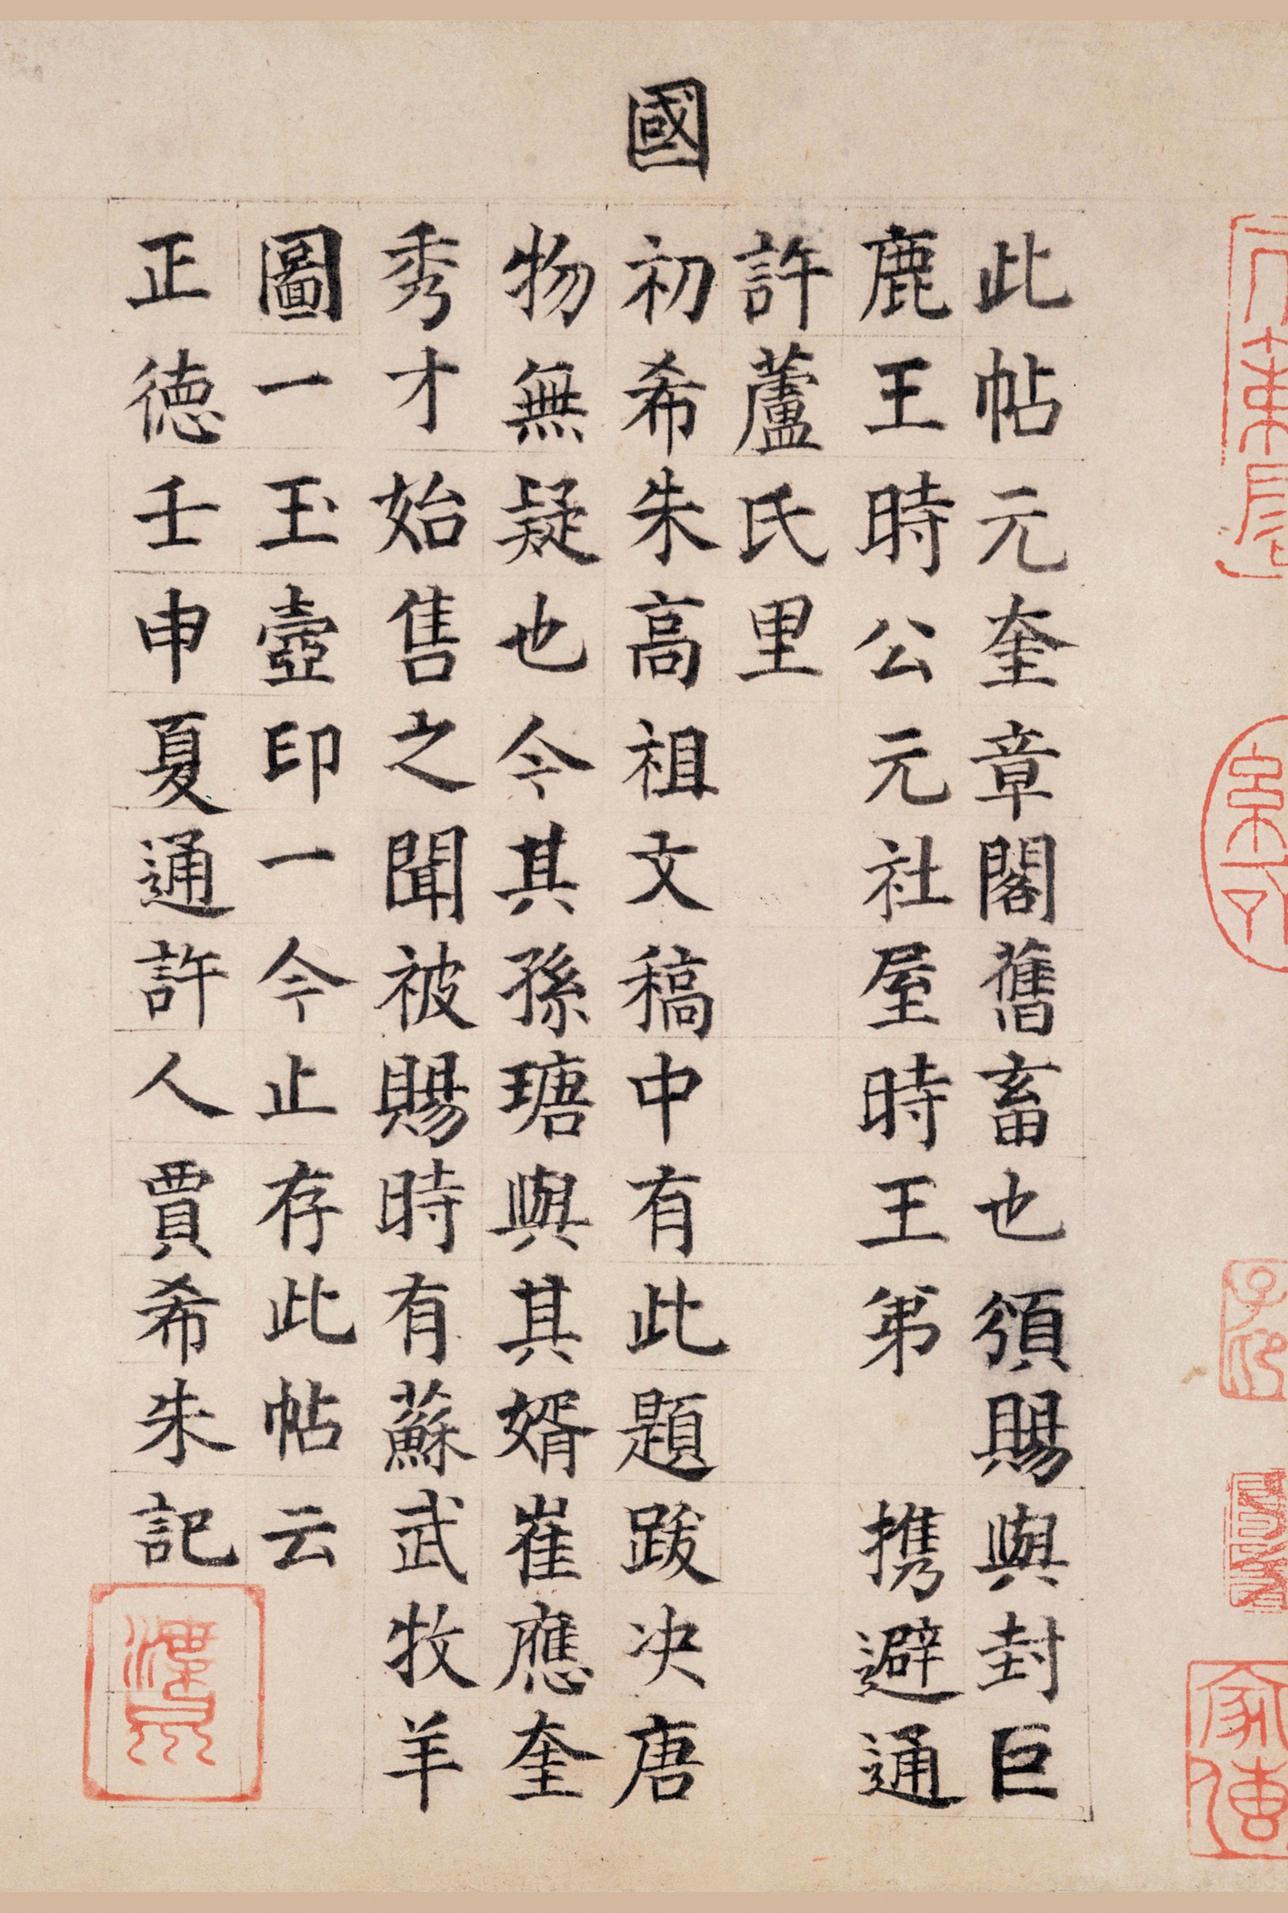 此帖元奎章閣舊畜也頒賜與封巨
鹿王時公元社屋時王弟 携避通
許蘆氏里
國初希朱高祖文稿中有此題跋决唐
物無疑也今其孫瑭與其婿崔應奎
秀才始售之聞被賜時有蘇武牧羊
圖一玉壺印一今止存此帖云
正德壬申夏通許人賈希朱記